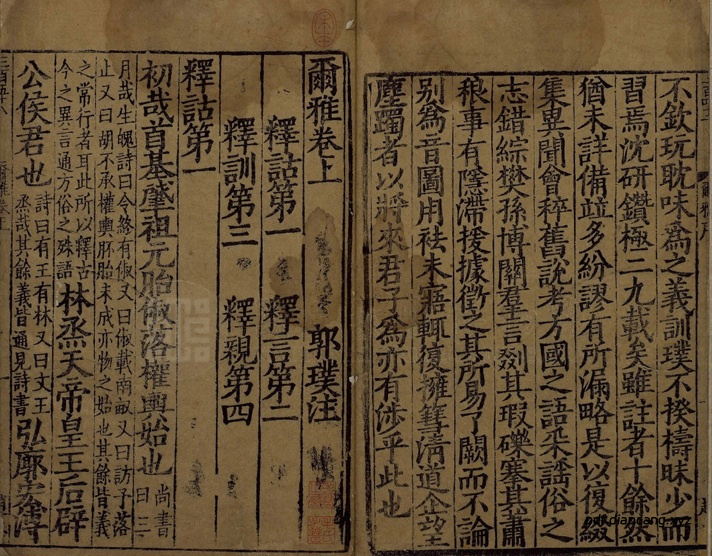 不欽玩耽味為之義訓璞不揆檮昧少而
習焉沈研鑽極二九載矣雖註者十餘然
猶未詳備竝多紛謬有所漏略是以復綴
集異聞會稡舊說考方國之語采謡俗之
志錯綜樊孫博關羣言剟其瑕礫搴其蕭
稂事有隱滯援據徵之其所易了闕而不論
别為音圖用袪未寤輒復擁篲清道企望
塵躅者以將來君子為亦有涉乎此也
爾雅卷上 郭璞注
釋詁第一 釋言第二
釋訓第三 釋親第四
釋詁第一
初哉首基肇祖元胎俶落權輿始也 尚書曰三
月哉生魄詩曰令終有俶又曰俶載南畝又曰訪予落
止又曰胡不承權輿胚胎未成亦物之始也其餘皆義
之常行者耳此所以釋古
今之異言通方俗之殊語 林烝天帝皇王后辟
公侯君也 詩曰有王有林又曰文王
烝哉其餘義皆通見詩書 弘廓宏溥
pdf.diancang.xyz